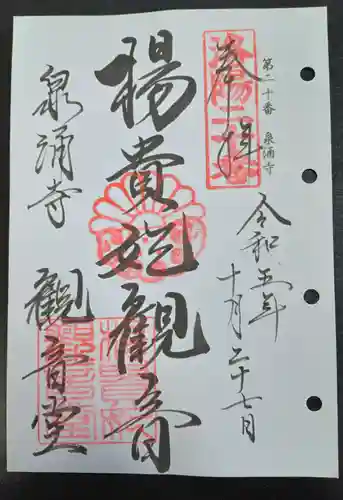 第二十番 泉涌寺
奉拝
令和五年
十月二十七日
楊貴妃観音
泉涌寺
観音堂